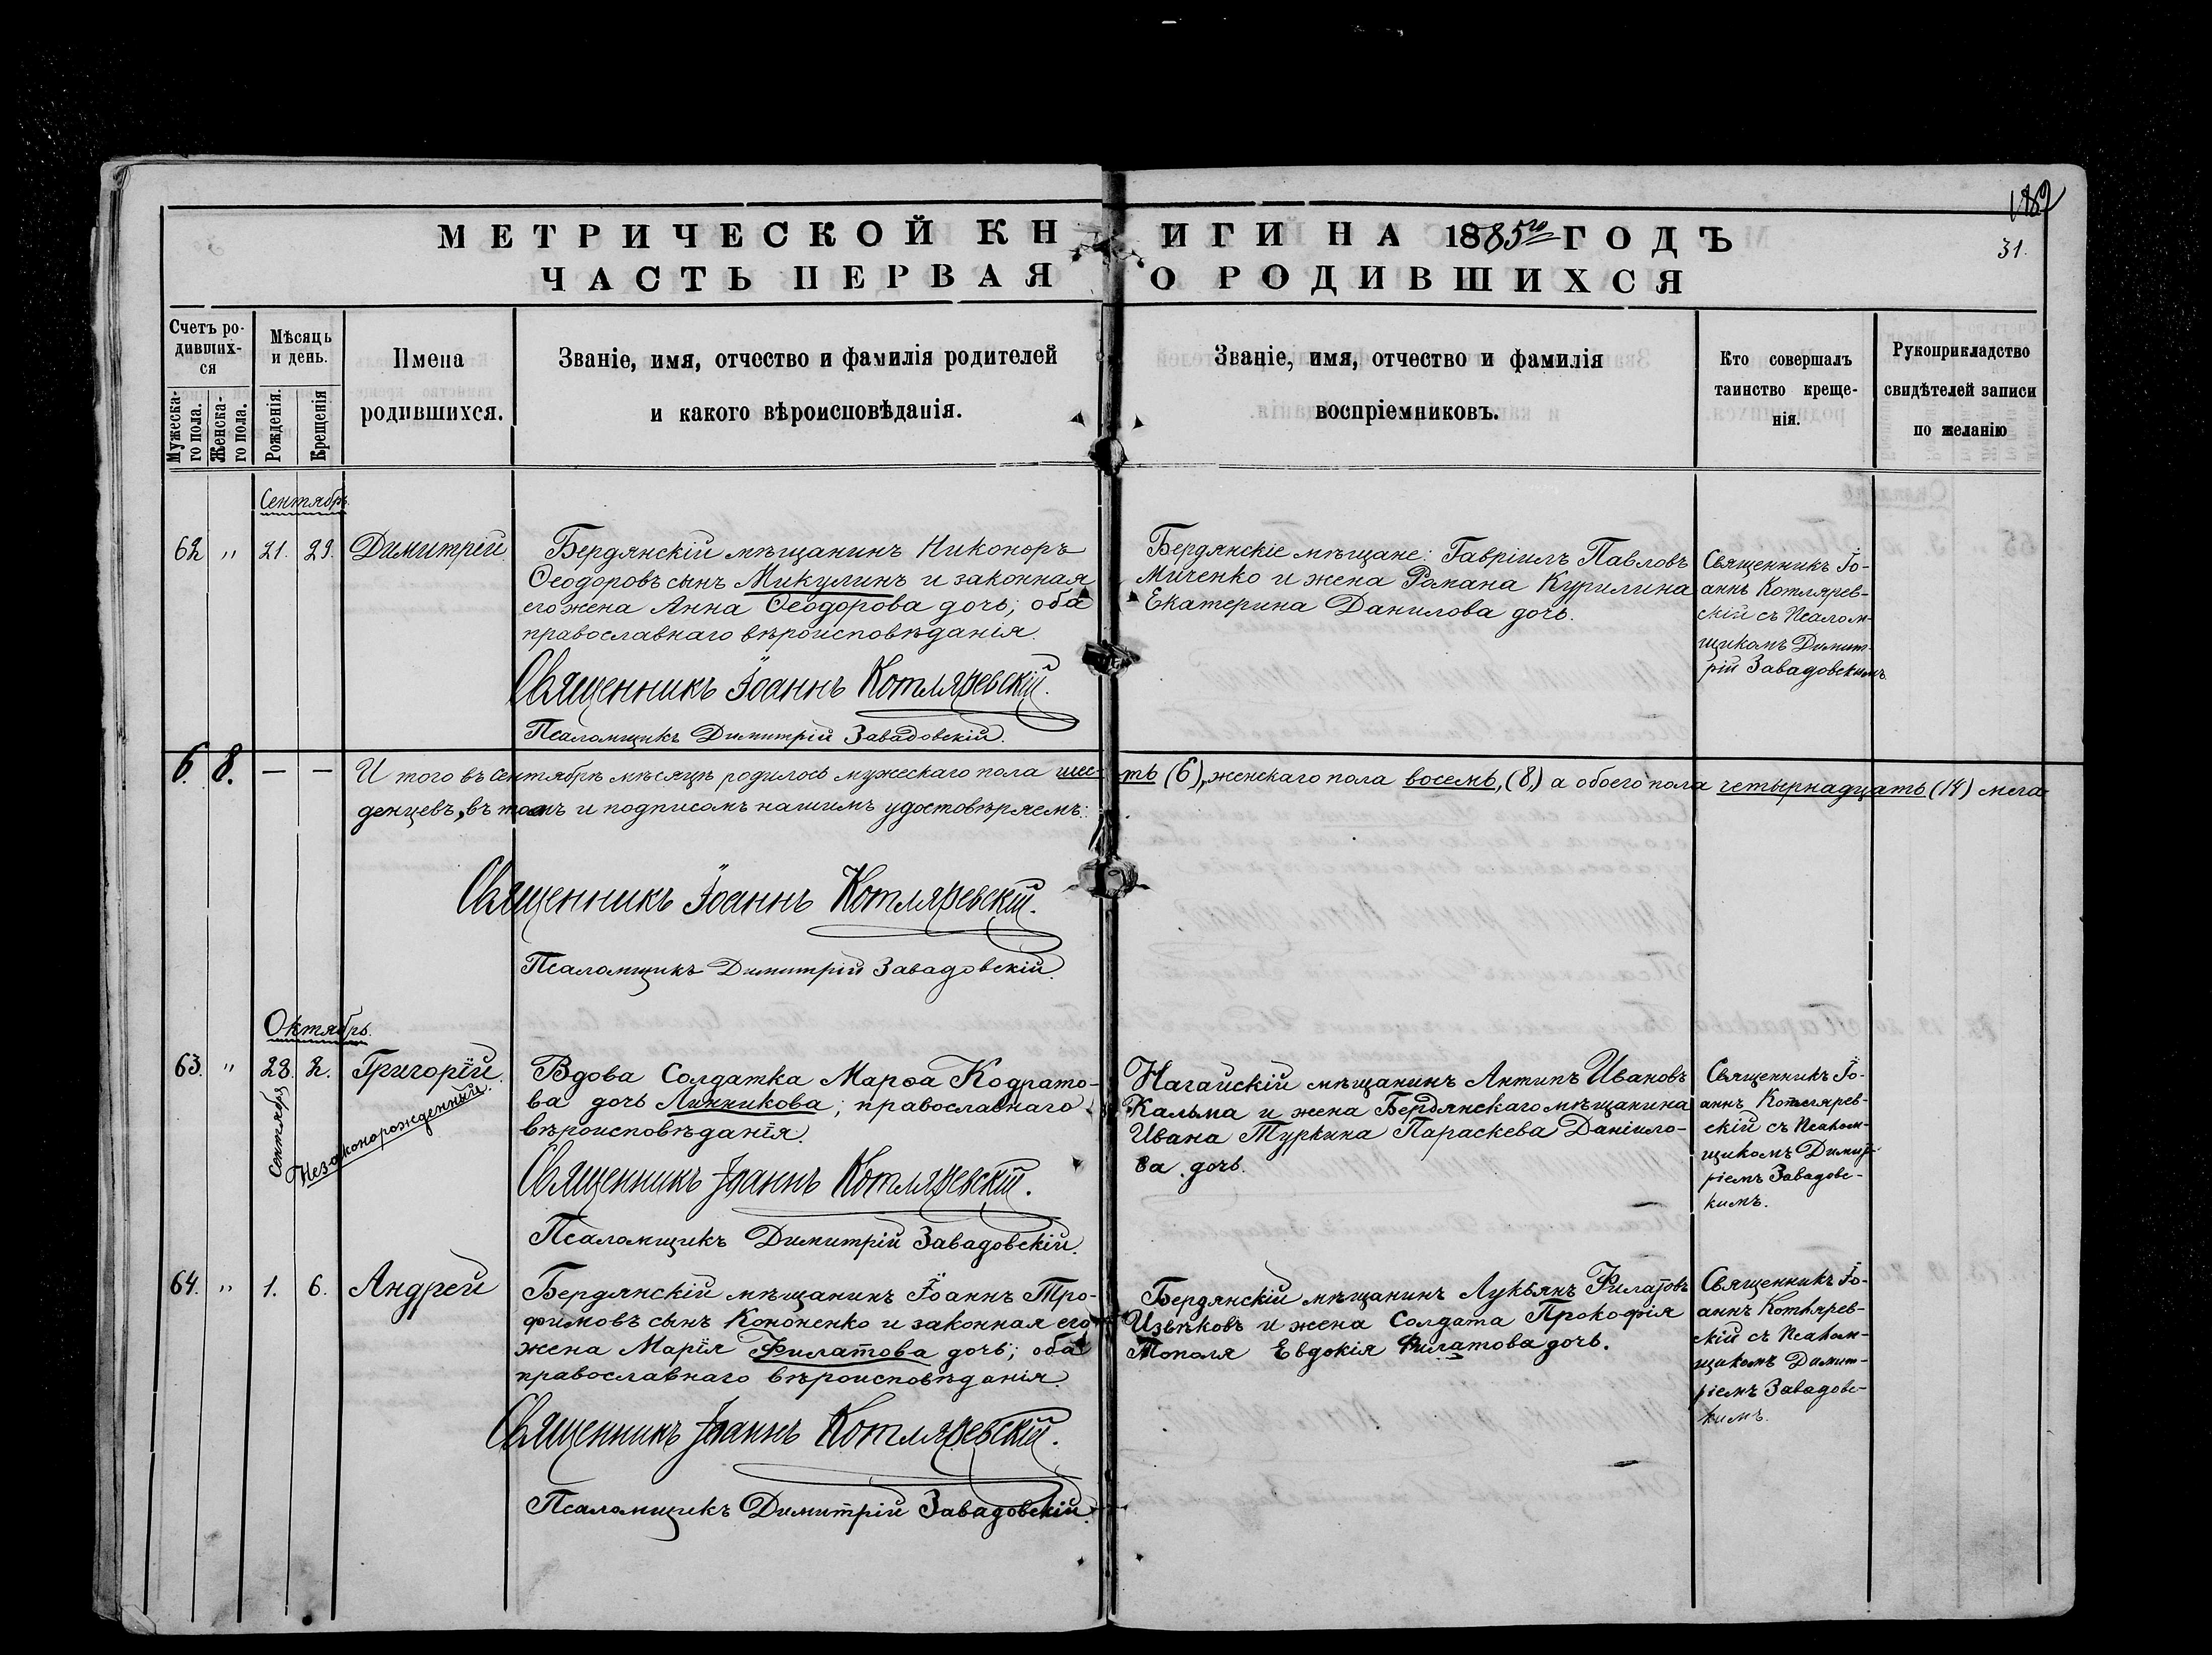 189
31.
МЕТРИЧЕСКОЙ КНИГИ НА 1885го ГОДЪ
ЧАСТЬ ПЕРВАЯ О РОДИВШИХСЯ
Счетъ ро-
дивших-
ся
Мужеска-
го пола.
Женска-
го пола.
Мѣсяцъ
и день.
Рожденія.
Крещенія
Имена
родившихся.
Званіе, имя, отчество и фамилія родителей
и какого вѣроисповѣданія.
Званіе, имя, отчество и фамилія
воспріемниковъ.
Кто совершалъ
таинство креще-
нія.
Рукоприкладство
свидѣтелей записи
по желанію
Сентябрь.
62 " 21. 29. Димитрій
Бердянскій мѣщанинъ Никоноръ
Ѳеодоровъ сынъ Микулинъ и законная
его жена Анна Ѳеодорова дочь; оба
православнаго вѣроисповѣданія.
Священникъ Іоаннъ Котляревскій.
Псаломщикъ Димитрій Завадовскій.
Бердянскіе мѣщане: Гавріилъ Павловъ
Миченко и жена Романа Курилина
Екатерина Данилова дочь.
Священникъ Іо-
аннъ Котлярев-
скій съ Псалом-
щикомъ Димит-
рій Завадовскимъ.
6. 8. — — И того въ Сентябрѣ мѣсяцѣ родилось мужескаго пола шесть (6), женскаго пола восемь, (8,) а обоего пола четырнадцать (14) мла
денцевъ, въ томъ и подписомъ нашимъ удостовѣряемъ:
Священникъ Іоаннъ Котляревскій.
Псаломщикъ Димитрій Завадовскій.
Октябрь.
63. " 28. 2. Григорій.
Сентября
Незаконорожденный.
Вдова Солдатка Марѳа Кодрато-
ва дочь Линникова; православнаго
вѣроисповѣданія.
Священникъ Іоаннъ Котляревскій.
Псаломщикъ Димитрій Завадовскій.
Нагайскій мѣщанинъ Антипъ Ивановъ
Кальма и жена Бердянскаго мѣщанина
Ивана Туркина Параскева Даніило-
ва дочь.
Священникъ Іо-
аннъ Котлярев-
скій съ Псалом-
щикомъ Димит-
ріемъ Завадовс-
кимъ.
64. " 1. 6. Андрей
Бердянскій мѣщанинъ Іоаннъ Тро-
фимовъ сынъ Кононенко и законная его
жена Марія Филатова дочь; оба
православнаго вѣроисповѣданія.
Священникъ Іоаннъ Котляревскій.
Псаломщикъ Димитрій Завадовскій.
Бердянскій мѣщанинъ Лукьянъ Филатовъ
Извѣковъ и жена Солдата Прокофія
Тополя Евдокія Филатова дочь.
Священникъ Іо-
аннъ Котлярев-
скій съ Псалом-
щикомъ Димит-
ріемъ Завадовс-
кимъ.